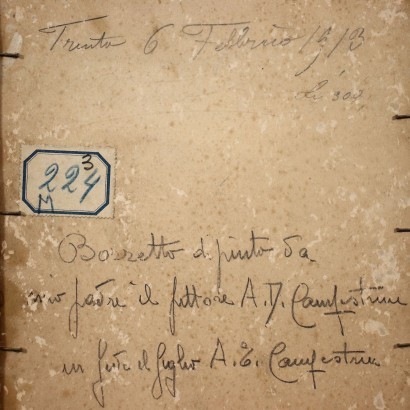 Trento 6 Febbraio
3
224
M
Bozzetto dipinto da
mio padre il pittore A. D. Campestrini
in fede il figlio A. E. Campestrini